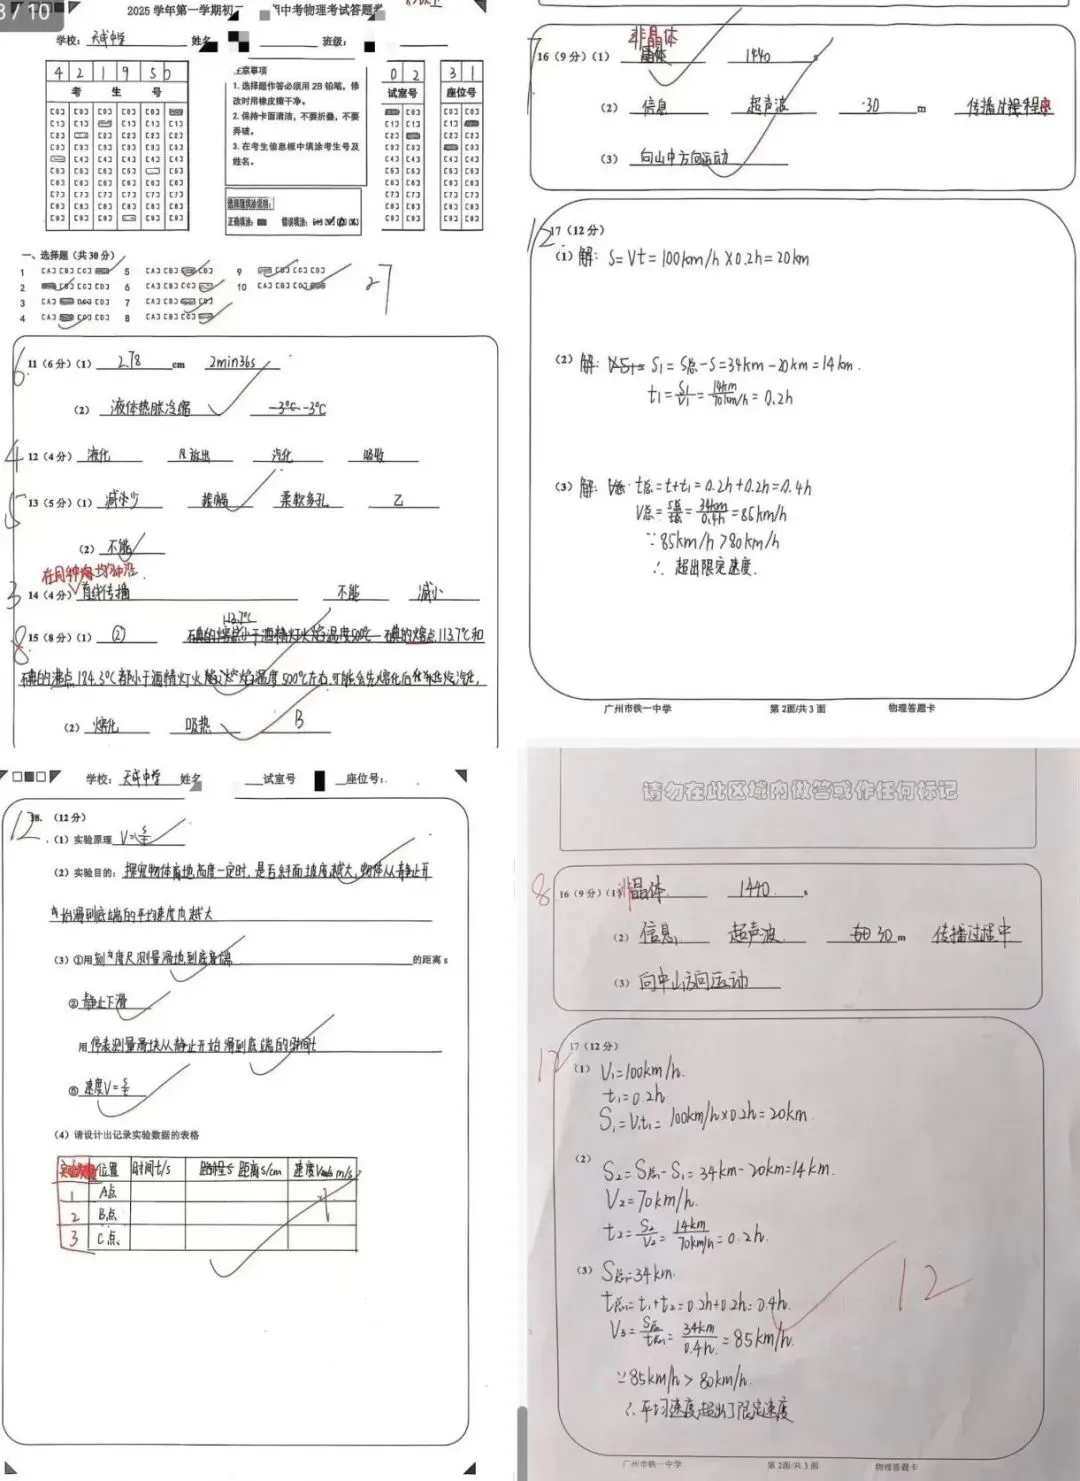 3/10
2025 学年第一学期初二 期中考物理考试答题卷
学校: 天成中学 姓名 班级:
4 2 1 9 5 0
考 生 号
注意事项
1. 选择题作答必须用 2B 铅笔，修
改时用橡皮擦干净。
2. 保持卡面清洁，不要折叠，不要
弄破。
3. 在考生信息框中填涂考生号及
姓名。
选择题填涂说明:
正确填涂: 错误填涂:
0 2
试室号
3 1
座位号
[0] [0] [0] [0] [0]
[1] [1] [1] [1] [1]
[2] [2] [2] [2] [2]
[3] [3] [3] [3] [3] [3]
[4] [4] [4] [4] [4]
[5] [5] [5] [5] [5]
[6] [6] [6] [6] [6] [6]
[7] [7] [7] [7] [7] [7]
[8] [8] [8] [8] [8] [8]
[9] [9] [9] [9] [9]
一、选择题（共 30 分）
1 [A] [B] [C] 5 [A] [B] [D] 9 [C] [D]
2 [C] [D] 6 [A] [B] [C] 10 [A] [B] [C]
3 [A] [C] [D] 7 [A] [B] [D]
4 [A] [C] [D] 8 [A] [B] [C]
27
6
11（6 分）（1） 2.78 cm 2min36s
（2） 液体热胀冷缩 -3℃
4
12（4 分） 液化 放出 汽化 吸收
5
13（5 分）（1） 减少 振幅 柔软多孔 乙
（2） 不能
在同种均匀
3
14（4 分） 直线传播 不能 减小
8
15（8 分）（1） ② 碘的熔点113.7℃和
碘的沸点184.3℃都小于酒精灯火焰温度500℃左右,可能会先熔化后汽化,
（2） 熔化 吸热 B
非晶体
16（9 分）（1） 晶体 1440 s
（2） 信息 超声波 30 m 传播过程中
（3） 向山中方向运动
12
17（12 分）
（1）解: S=Vt=100km/h×0.2h=20km
（2）解: S₁=S总-S=34km-20km=14km.
t₁=S₁/V₁=14km/70km/h=0.2h
（3）解: t总=t+t₁=0.2h+0.2h=0.4h
V总=S总/t总=34km/0.4h=85km/h
∵85km/h>80km/h
∴超出限定速度.
广州市铁一中学 第 2面/共 3 面 物理答题卡
学校: 天成中学 姓名 试室号 座位号:
12
18. （12 分）
（1）实验原理 V=s/t
（2）实验目的: 探究物体离地高度一定时,是否斜面坡度越大,物体从静止开
始滑到底端的平均速度越大
（3）①用刻度尺测量 的距离 s
② 静止下滑
用 停表测量滑块从静止开始滑到底端的时间t
⑤ 速度V=s/t
（4）请设计出记录实验数据的表格
位置 时间t/s 距离s/cm 速度 m/s
1 A点
2 B点
3 C点
请勿在此区域内做答或作任何标记
8
16（9 分）（1）非晶体 1440 s
（2） 信息 超声波 30 m 传播过程中
（3） 向中山方向运动
12
17（12 分）
（1） V₁=100km/h.
t₁=0.2h
S₁=V₁t₁=100km/h×0.2h=20km.
（2）
S₂=S总-S₁=34km-20km=14km.
V₂=70km/h.
t₂=S₂/V₂=14km/70km/h=0.2h.
（3） S总=34km.
t总=t₁+t₂=0.2h+0.2h=0.4h.
V₃=S总/t总=34km/0.4h=85km/h.
∵85km/h>80km/h.
∴平均速度超出了限定速度
12
广州市铁一中学 第 2面/共 3 面 物理答题卡